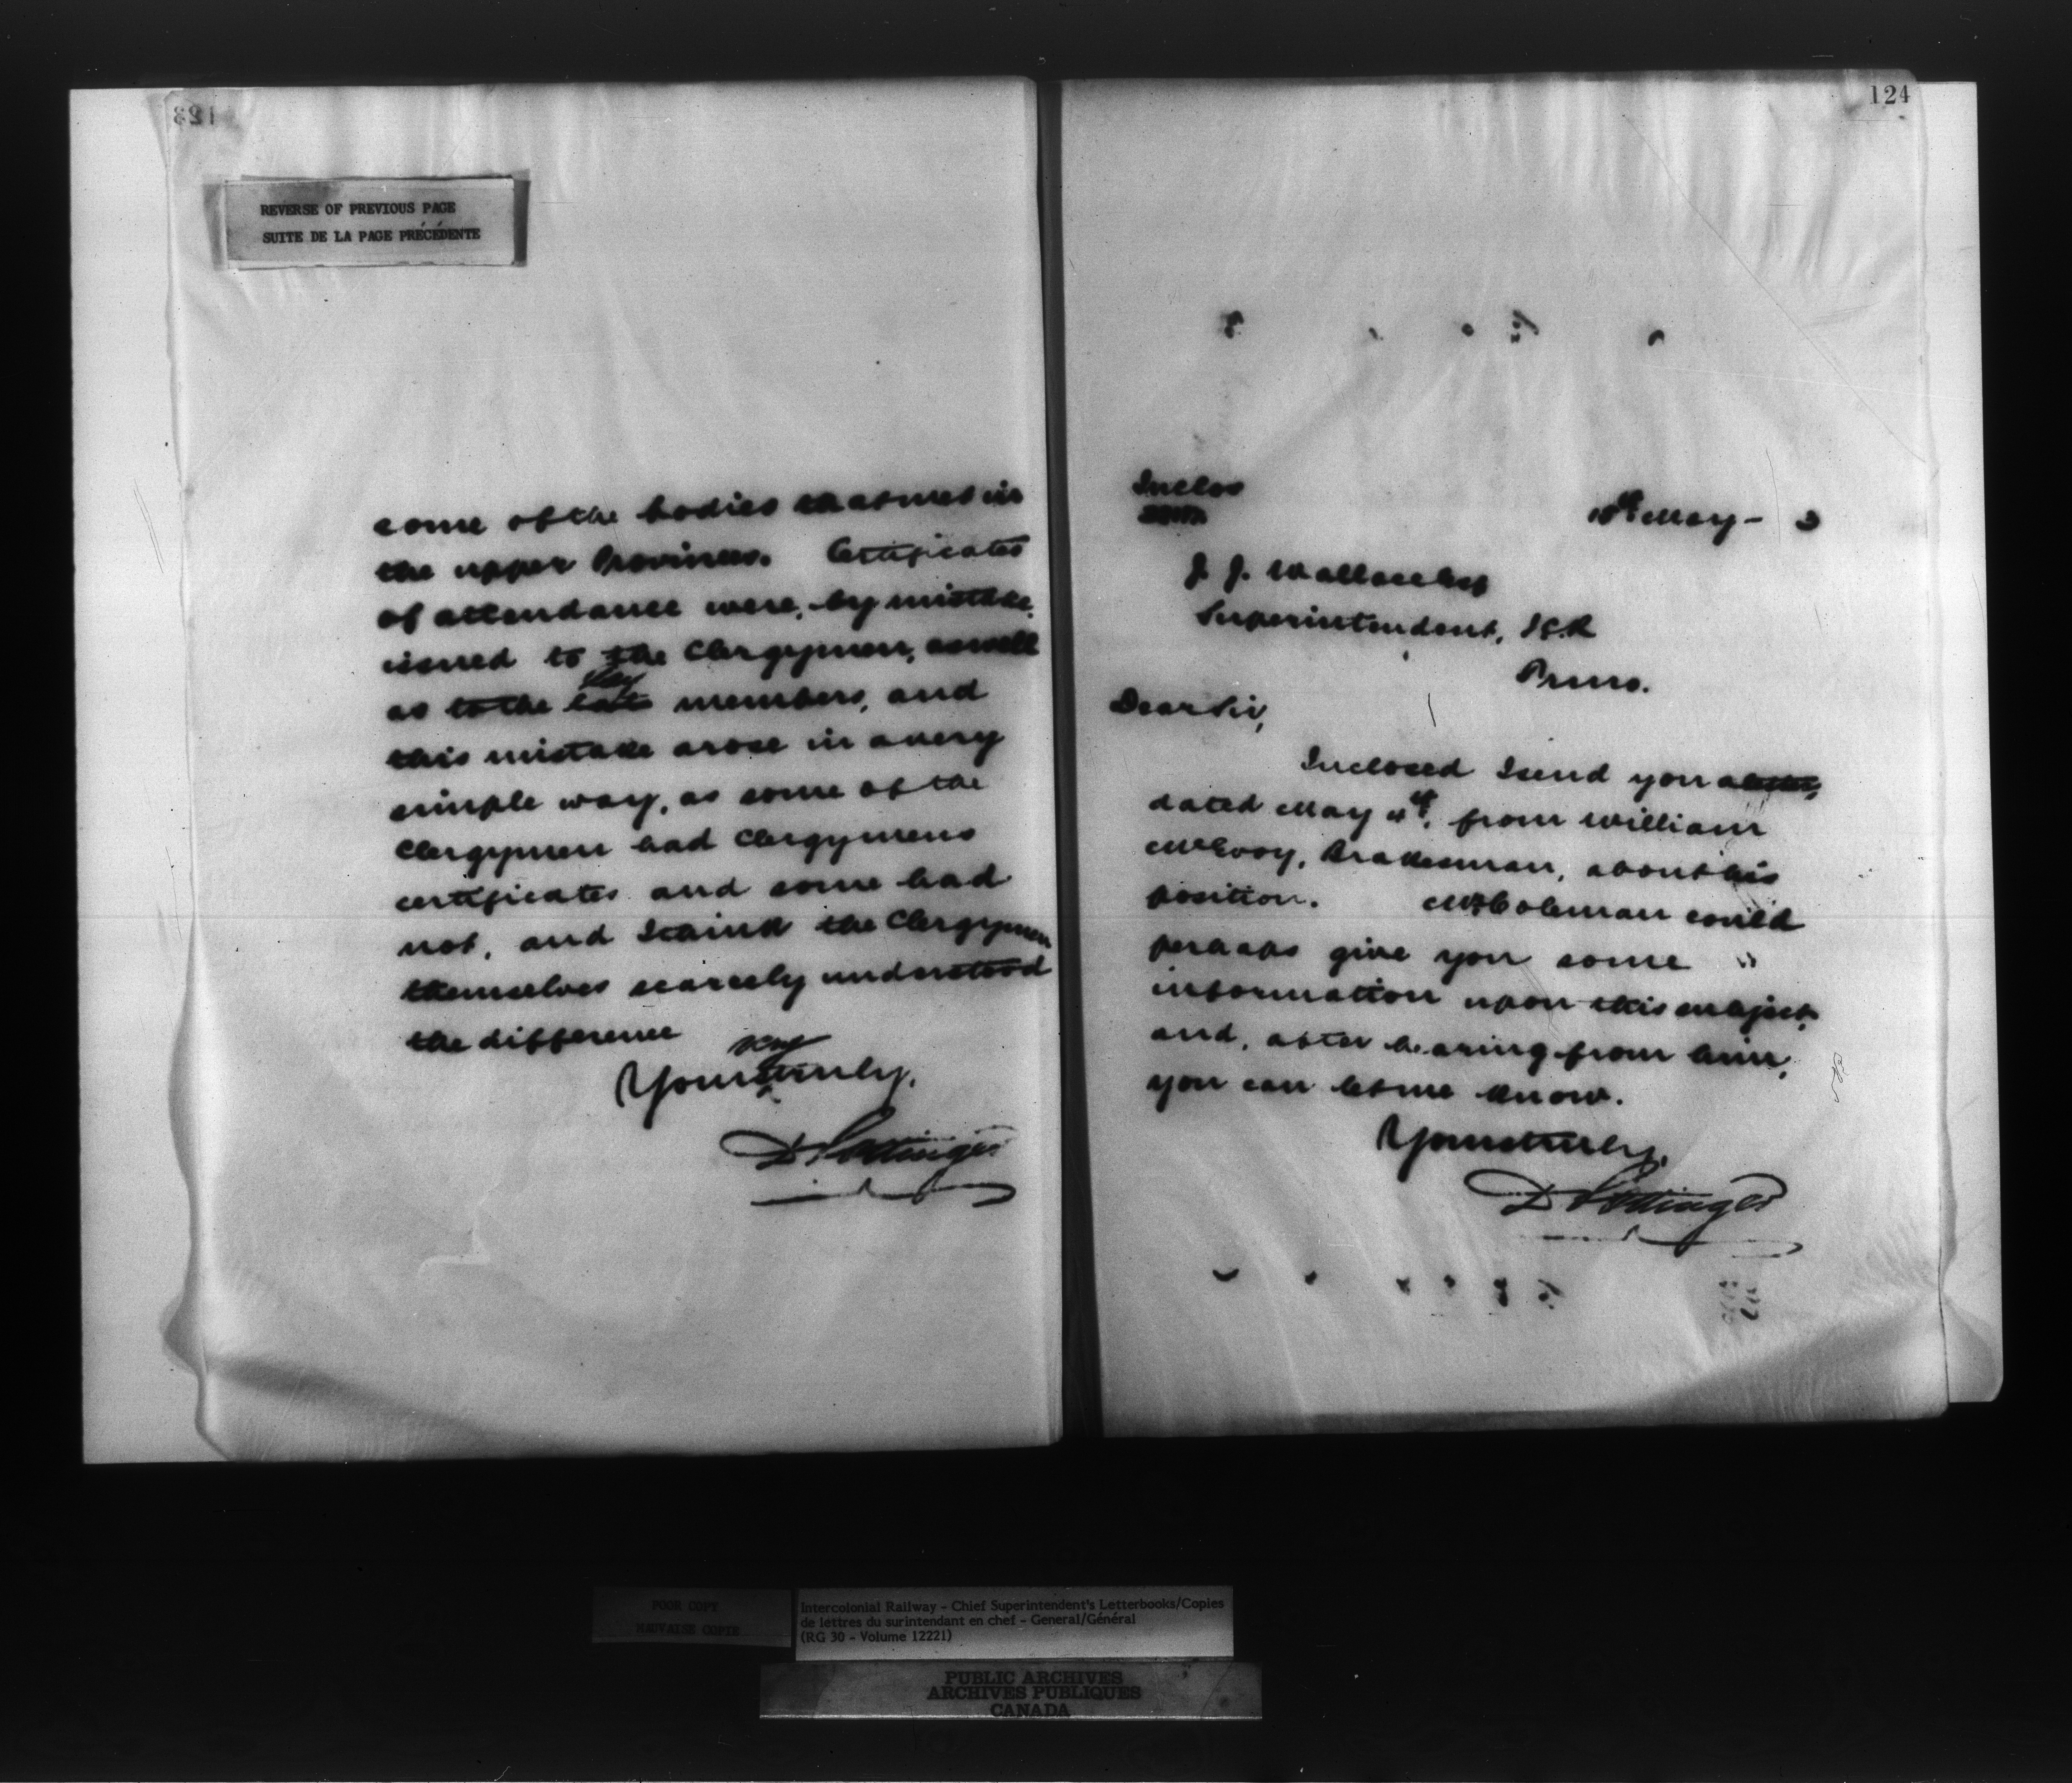 123
REVERSE OF PREVIOUS PAGE
SUITE DE LA PAGE PRÉCÉDENTE
some of the bodies that met in
the upper Provinces. Certificates
of attendance were, by mistake,
issued to the Clergymen, as well
as to the lay members, and
this mistake arose in a very
simple way, as some of the
Clergymen had Clergymens
certificates and some had
not, and I think the Clergymen
themselves scarcely understood
the difference
Yours truly,
D Pottinger
124
Inclos
10th May - 3
J. J. Wallace Esq
Superintendent, I.C.R
Dear Sir,
Inclosed I send you a letter,
dated May 4th, from William
McEvoy, Brakesman, about his
position. Mr Coleman could
perhaps give you some
information upon this subject,
and, after hearing from him,
you can let me know.
Yours truly,
D Pottinger
POOR COPY
MAUVAISE COPIE
Intercolonial Railway - Chief Superintendent's Letterbooks/Copies
de lettres du surintendant en chef - General/Général
(RG 30 - Volume 12221)
PUBLIC ARCHIVES
ARCHIVES PUBLIQUES
CANADA